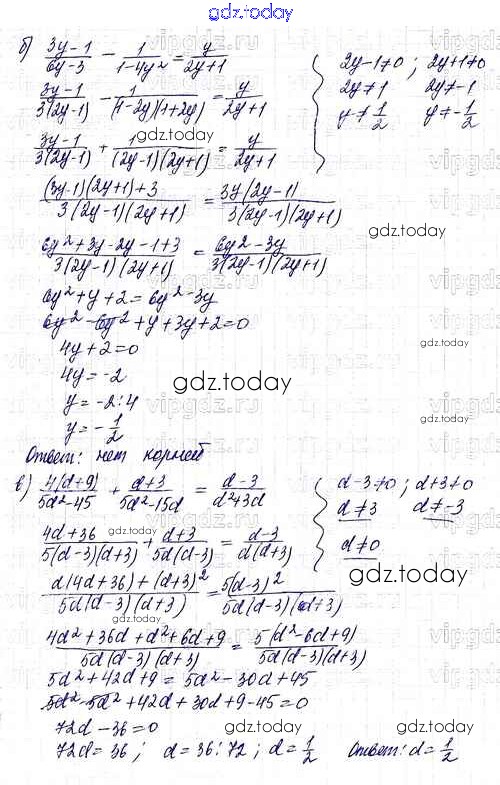 gdz.today
б) (3y-1)/(6y-3) - 1/(1-4y²) = y/(2y+1) { 2y-1≠0; 2y+1≠0
(3y-1)/(3(2y-1)) - 1/((1-2y)(1+2y)) = y/(2y+1) 2y≠1 2y≠-1
y≠1/2 y≠-1/2
gdz.today
(3y-1)/(3(2y-1)) + 1/((2y-1)(2y+1)) = y/(2y+1)
((3y-1)(2y+1)+3)/(3(2y-1)(2y+1)) = 3y(2y-1)/(3(2y-1)(2y+1))
gdz.today
(6y²+3y-2y-1+3)/(3(2y-1)(2y+1)) = (6y²-3y)/(3(2y-1)(2y+1))
vipgdz.ru
6y²+y+2=6y²-3y
6y²-6y²+y+3y+2=0
4y+2=0
4y=-2
gdz.today
y=-2:4
y=-1/2
gdz.today
Ответ: нет корней
в) 4(d+9)/(5d²-45) + (d+3)/(5d²-15d) = (d-3)/(d²+3d) { d-3≠0; d+3≠0
d≠3 d≠-3
gdz.today
(4d+36)/(5(d-3)(d+3)) + (d+3)/(5d(d-3)) = (d-3)/(d(d+3)) d≠0
gdz.today
(d(4d+36)+(d+3)²)/(5d(d-3)(d+3)) = 5(d-3)²/(5d(d-3)(d+3))
(4d²+36d+d²+6d+9)/(5d(d-3)(d+3)) = 5(d²-6d+9)/(5d(d-3)(d+3))
5d²+42d+9=5d²-30d+45
5d²-5d²+42d+30d+9-45=0
72d-36=0
gdz.today
gdz.today
72d=36; d=36:72; d=1/2 Ответ: d=1/2